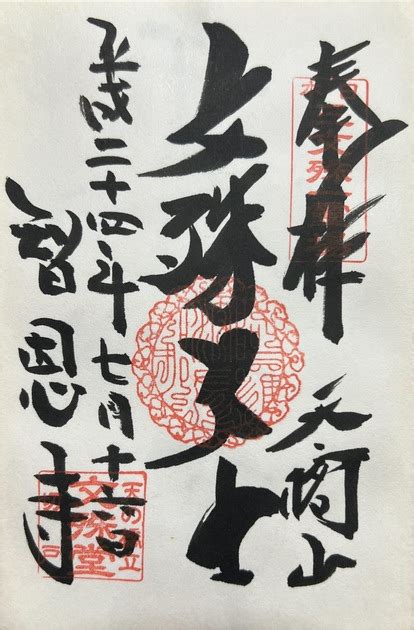 奉拝
天橋山
文殊大士
平成二十四年七月十六日
智恩寺
天の橋立
文殊堂